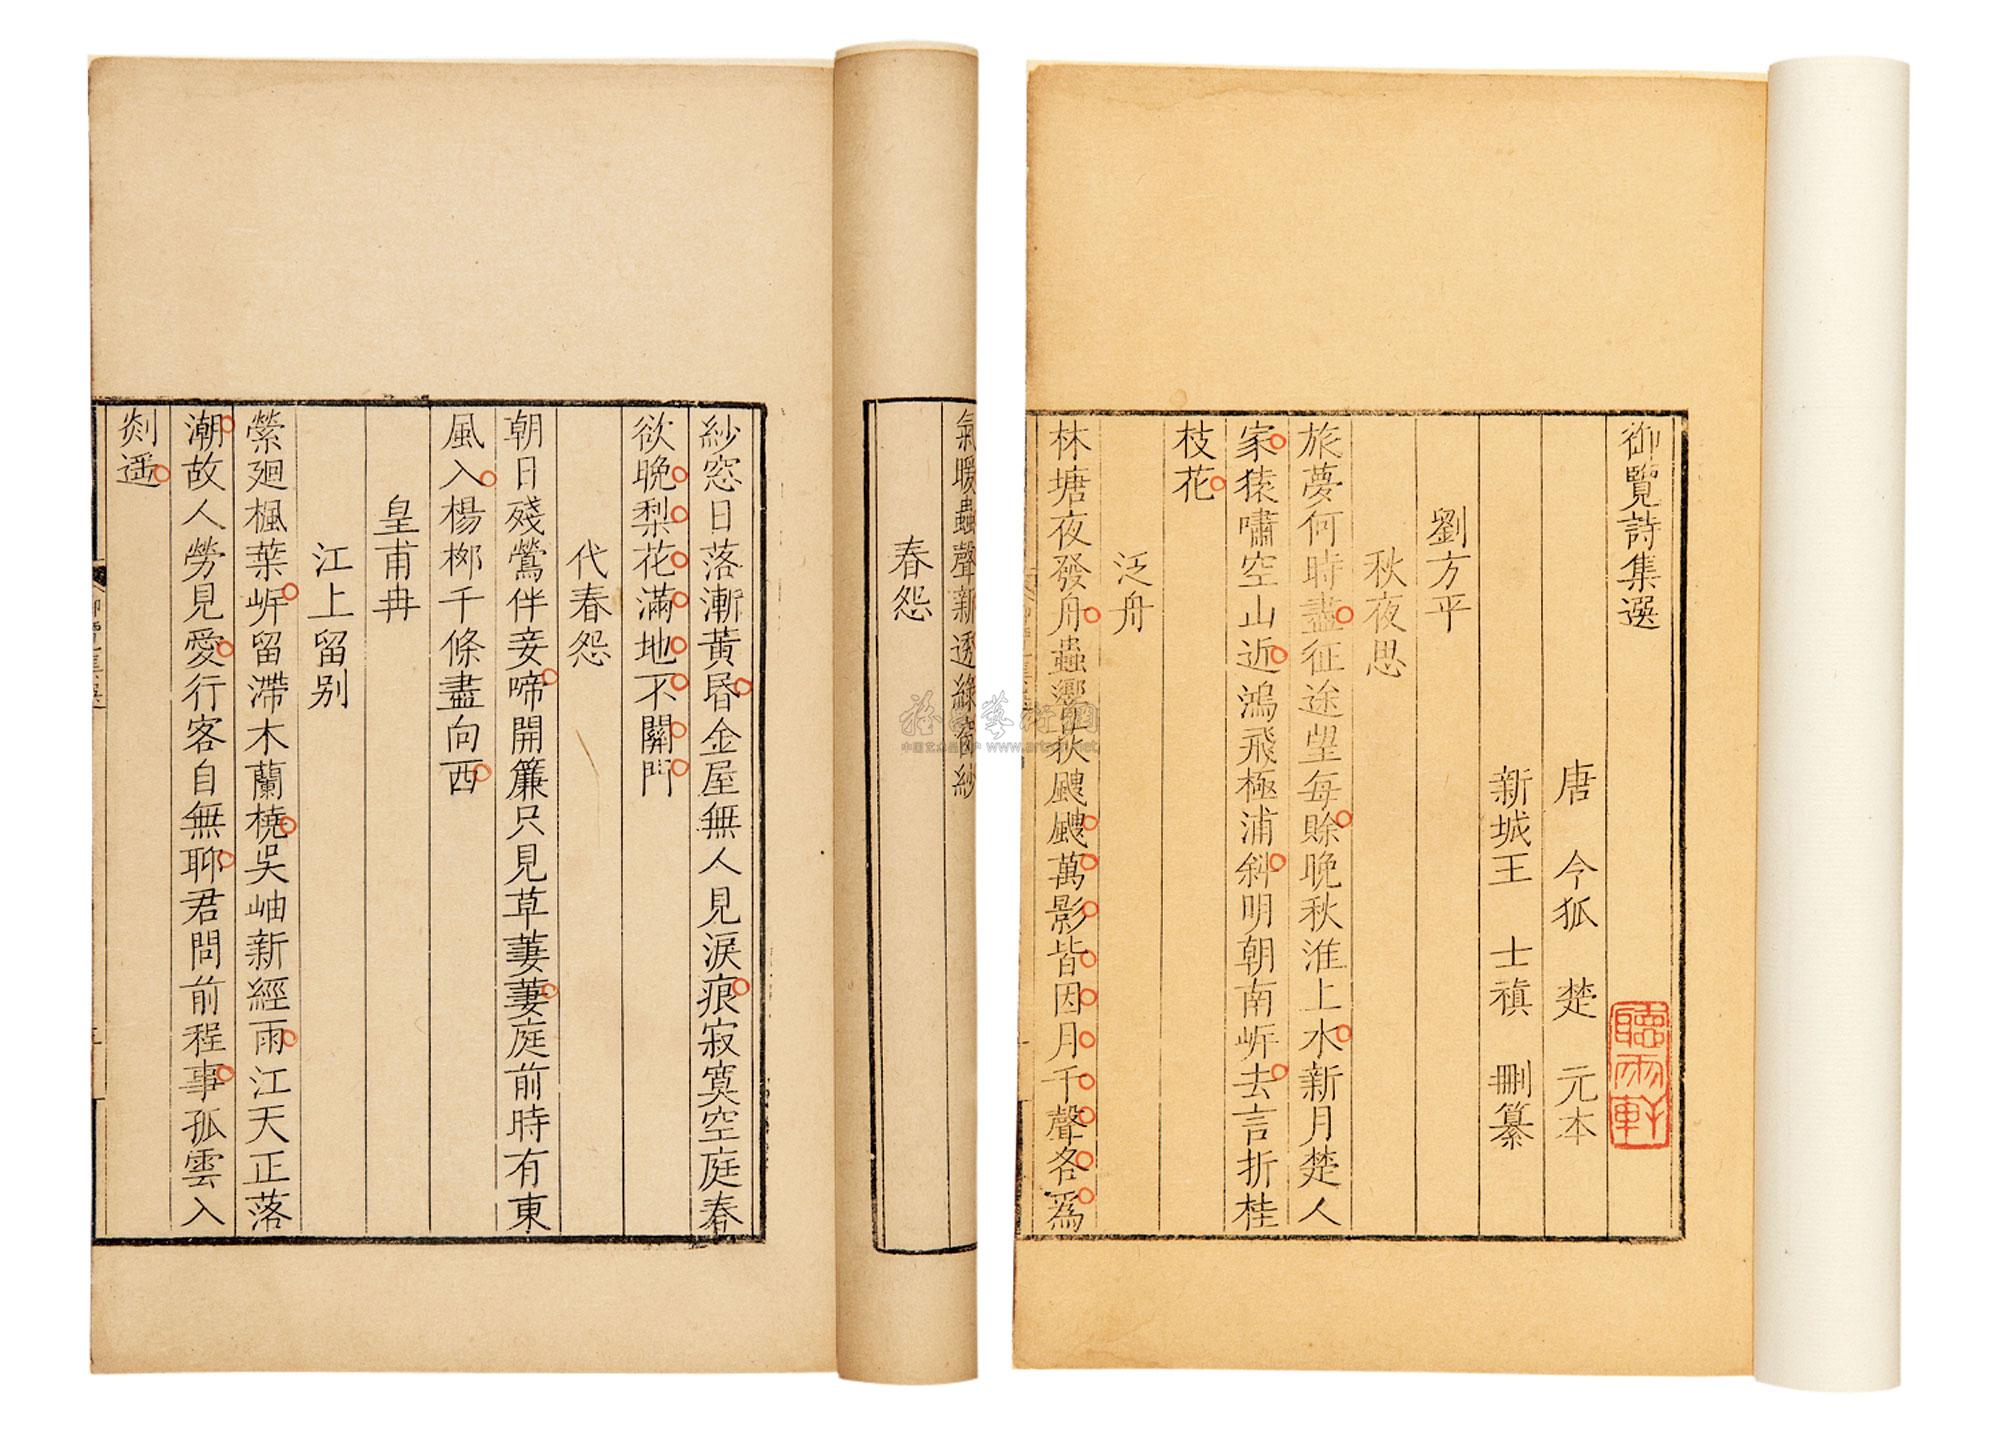 御覽詩集選
聽雨軒
唐令狐楚元本
新城王士禛刪纂
劉方平
秋夜思
旅夢何時盡征途望每賖晚秋淮上水新月楚人
家猿嘯空山近鴻飛極浦斜明朝南㟁去言折桂
枝花
泛舟
林塘夜發舟蟲響荻颼颼萬影皆因月千聲各爲
氣暖蟲聲新透綠窗紗
春怨
紗窓日落漸黃昏金屋無人見淚痕寂寞空庭春
欲晚梨花滿地不關門
代春怨
朝日殘鶯伴妾啼開簾只見草萋萋庭前時有東
風入楊栁千條盡向西
皇甫冉
江上留别
縈廻楓葉㟁留滯木蘭橈吳岫新經雨江天正落
潮故人勞見愛行客自無聊君問前程事孤雲入
剡遥
中国艺术品网 www.artsnn.net